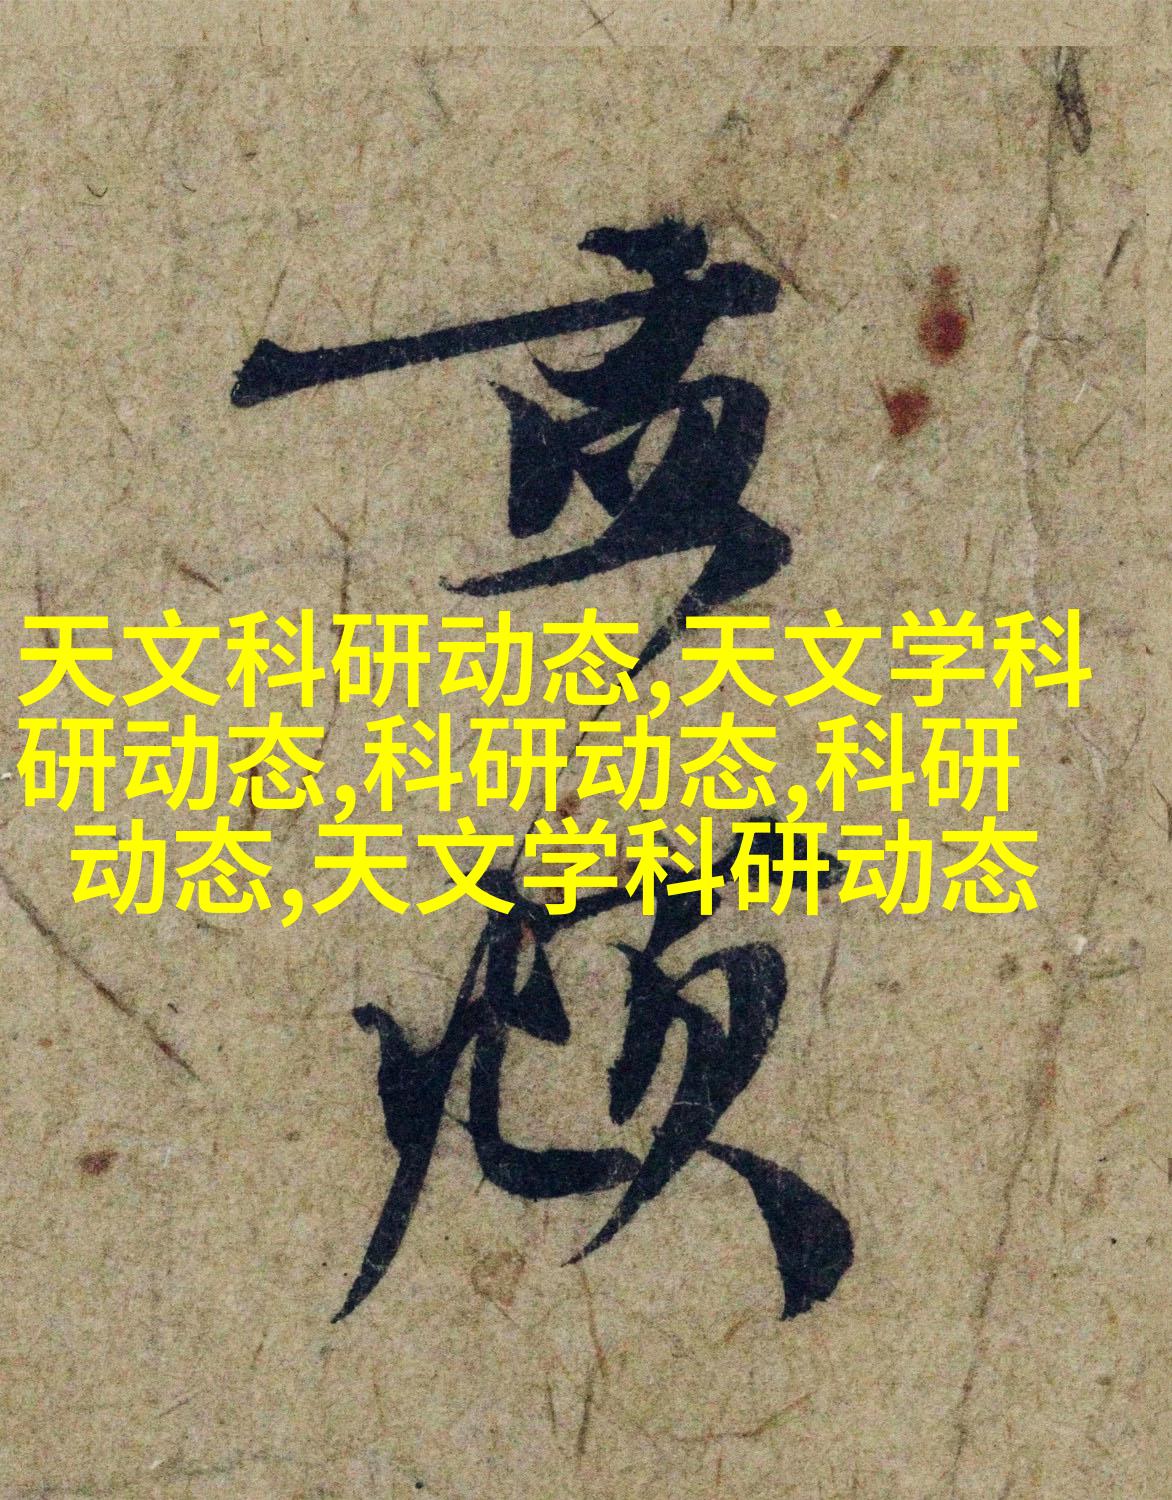 天文科研动态,天文学科
研动态,科研动态,科研
动态,天文学科研动态